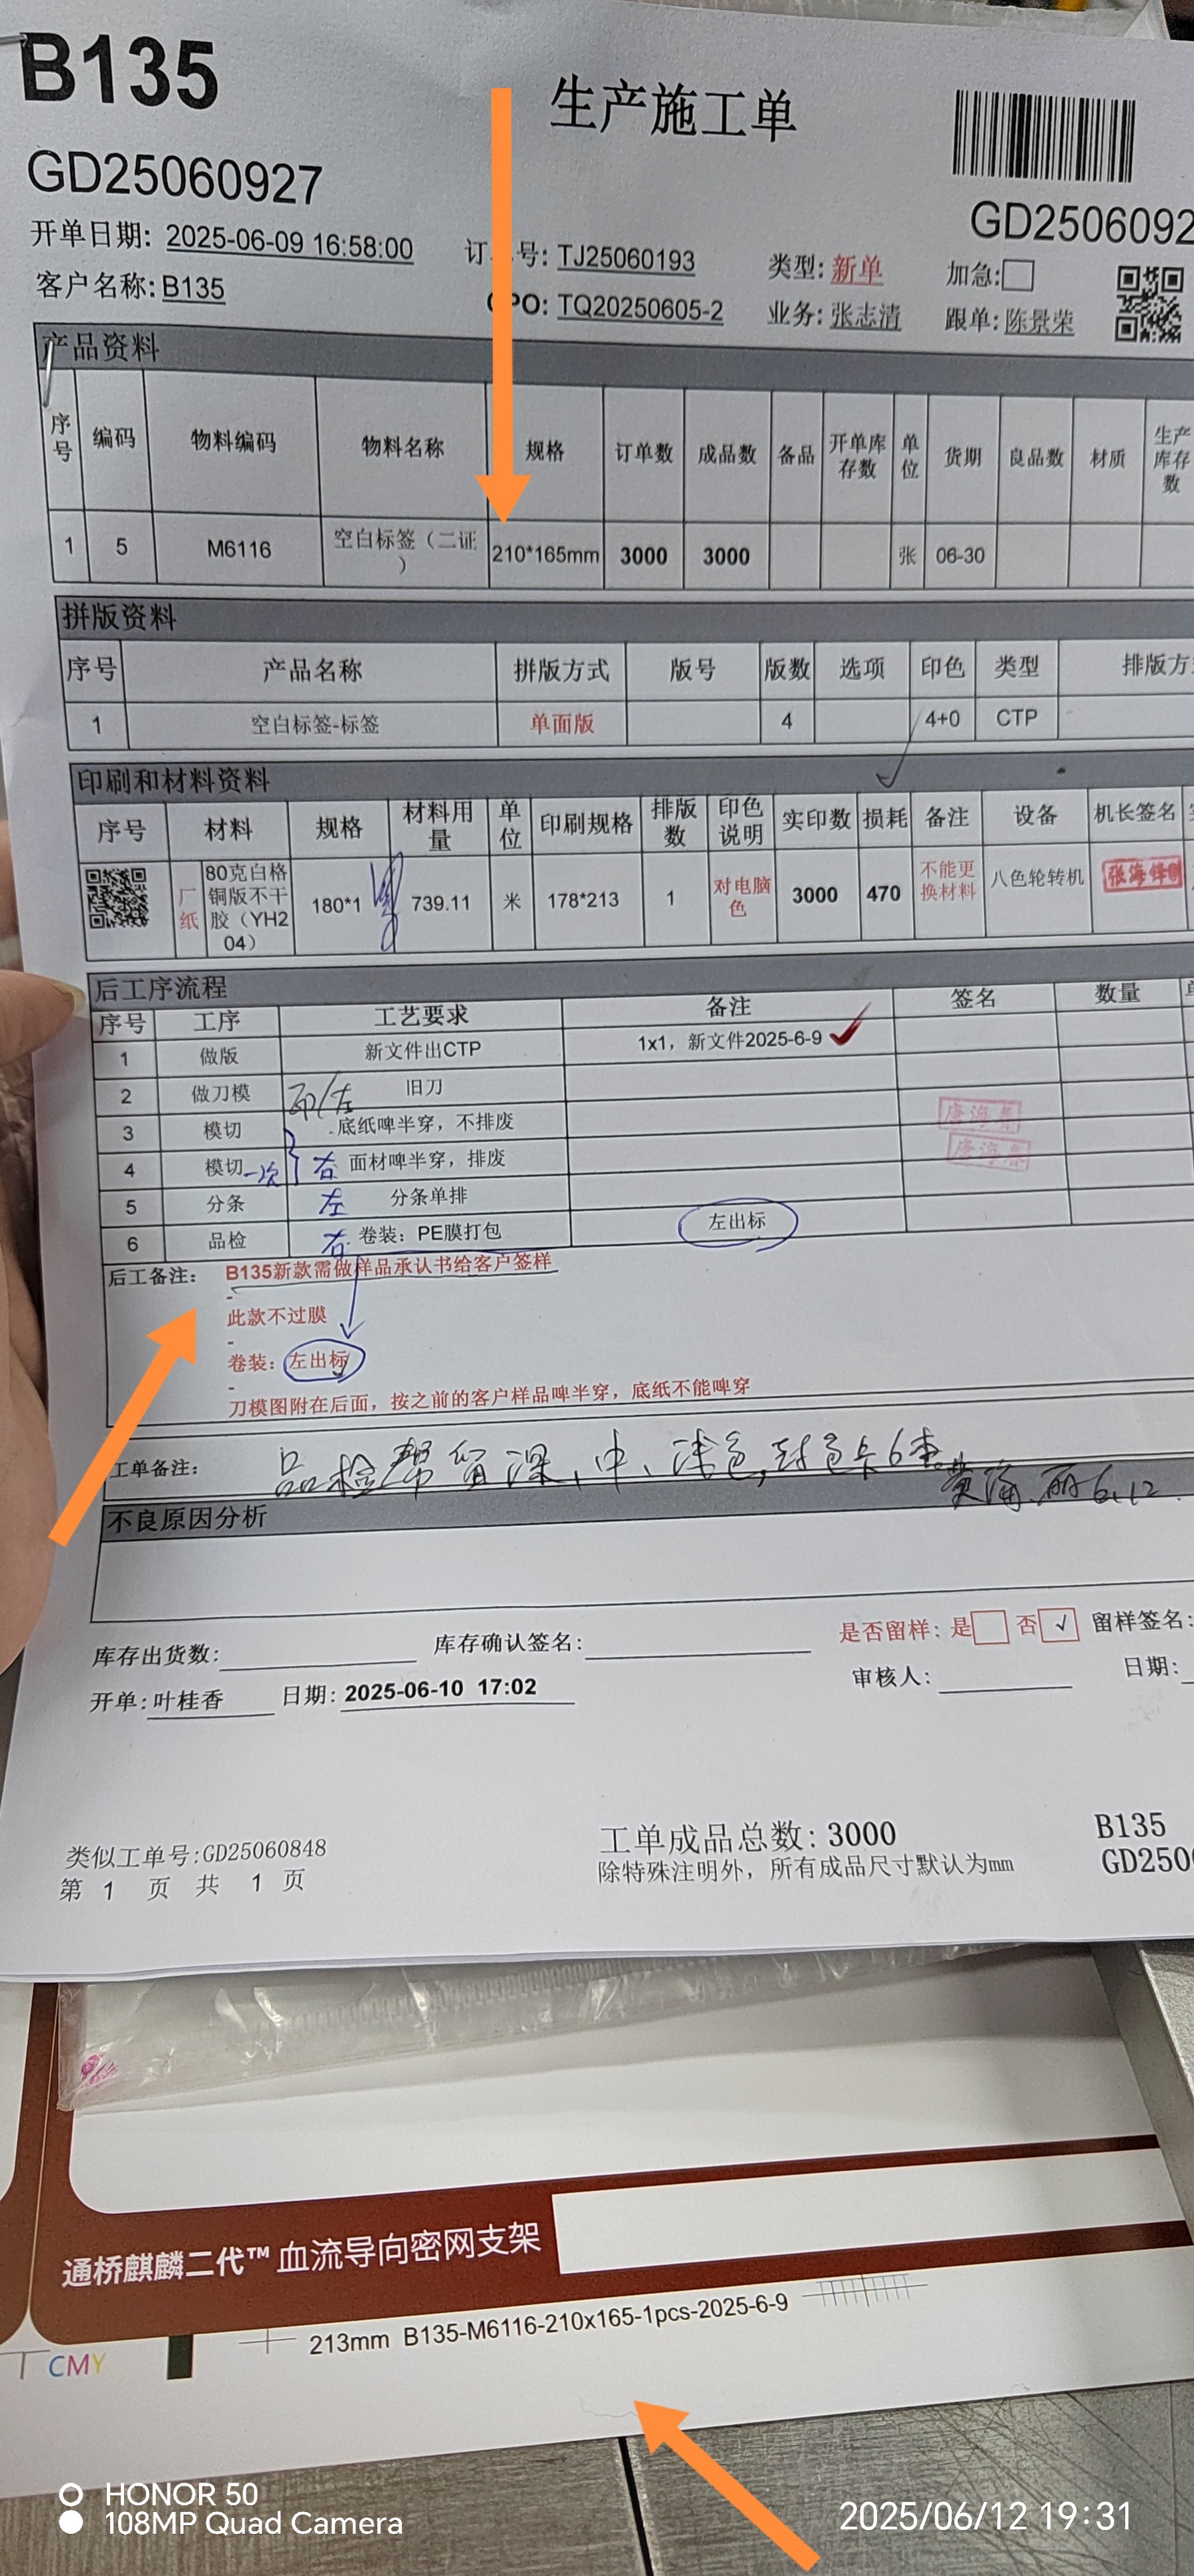 B135
生产施工单
GD25060927
GD2506092
开单日期: 2025-06-09 16:58:00 号: TJ25060193 类型: 新单 加急:
客户名称: B135 PO: TQ20250605-2 业务: 张志清 跟单: 陈景荣
产品资料
序号 编码 物料编码 物料名称 规格 订单数 成品数 备品 开单库存数 单位 货期 良品数 材质 生产库存数
1 5 M6116 空白标签（二证） 210*165mm 3000 3000 张 06-30
拼版资料
序号 产品名称 拼版方式 版号 版数 选项 印色 类型 排版方
1 空白标签-标签 单面版 4 4+0 CTP
印刷和材料资料
序号 材料 规格 材料用量 单位 印刷规格 排版数 印色说明 实印数 损耗 备注 设备 机长签名
厂纸 80克白格铜版不干胶（YH204） 180*1 739.11 米 178*213 1 对电脑色 3000 470 不能更换材料 八色轮转机 张海锋
后工序流程
序号 工序 工艺要求 备注 签名 数量
1 做版 新文件出CTP 1x1，新文件2025-6-9
2 做刀模 印/左 旧刀
3 模切 底纸啤半穿，不排废 唐海春
4 模切 一次 右 面材啤半穿，排废 唐海春
5 分条 左 分条单排
6 品检 右 卷装：PE膜打包 左出标
后工备注： B135新款需做样品承认书给客户签样
-
此款不过膜
-
卷装：左出标
-
刀模图附在后面，按之前的客户样品啤半穿，底纸不能啤穿
工单备注： 品检帮留深、中、浅色，封色卡6套
6.12
不良原因分析
是否留样: 是 否 √ 留样签名:
库存出货数: 库存确认签名:
审核人: 日期:
开单: 叶桂香 日期: 2025-06-10 17:02
类似工单号:GD25060848 工单成品总数: 3000 B135
第 1 页 共 1 页 除特殊注明外，所有成品尺寸默认为mm GD250
通桥麒麟二代™ 血流导向密网支架
213mm B135-M6116-210x165-1pcs-2025-6-9
CMY
HONOR 50
108MP Quad Camera
2025/06/12 19:31